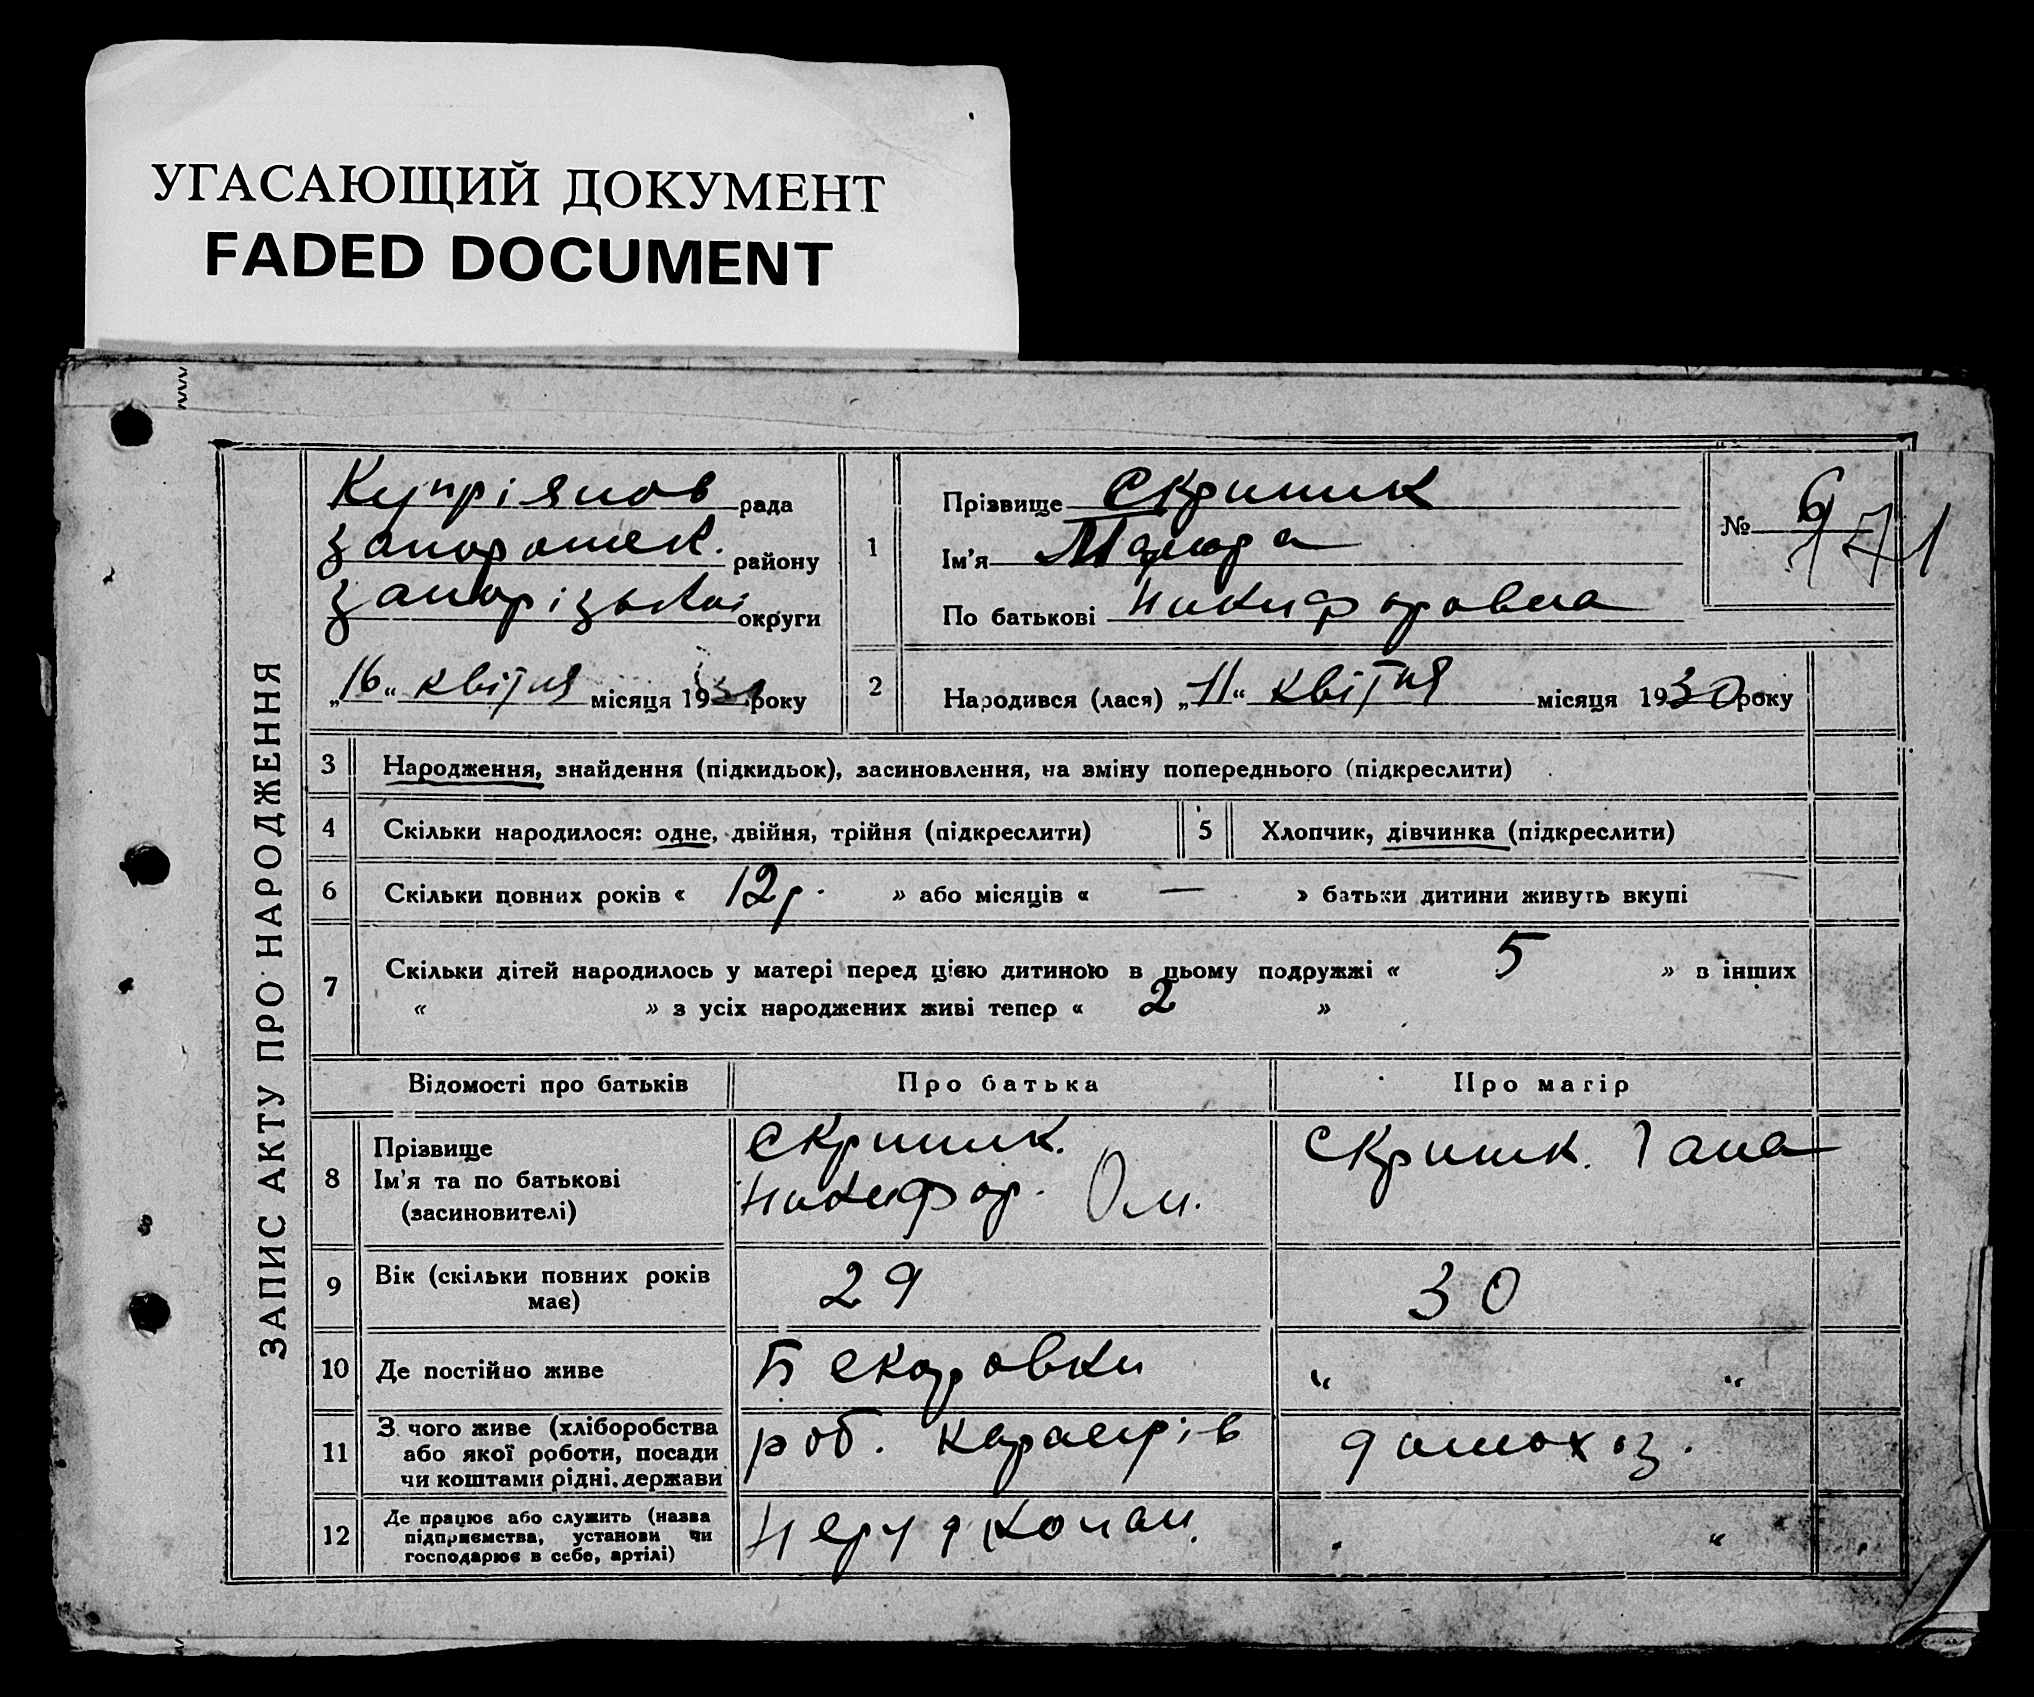 УГАСАЮЩИЙ ДОКУМЕНТ
FADED DOCUMENT
ЗАПИС АКТУ ПРО НАРОДЖЕННЯ
Купріянов рада
району
Запорізької округи
„16“ квітня місяця 1930 року
1
Прізвище
Ім'я
По батькові Никифоровна
№ 6
171
2
Народився (лася) „11“ квітня місяця 1930 року
3 Народження, знайдення (підкидьок), засиновлення, на зміну попереднього (підкреслити)
4 Скільки народилося: одне, двійня, трійня (підкреслити)
5 Хлопчик, дівчинка (підкреслити)
6 Скільки повних років « 12 р. » або місяців « — » батьки дитини живуть вкупі
7 Скільки дітей народилось у матері перед цією дитиною в цьому подружжі « 5 » в інших
« » з усіх народжених живі тепер « 2 »
Відомості про батьків
Про батька
Про матір
8
Прізвище
Ім'я та по батькові
(засиновителі)
Никифор. Ом.
Гана
9
Вік (скільки повних років
має)
29
30
10 Де постійно живе
" "
11
З чого живе (хліборобства
або якої роботи, посади
чи коштами рідні, держави
роб. карєрів
домохоз.
12
Де працює або служить (назва
підприємства, установи чи
господарює в себе, артілі)